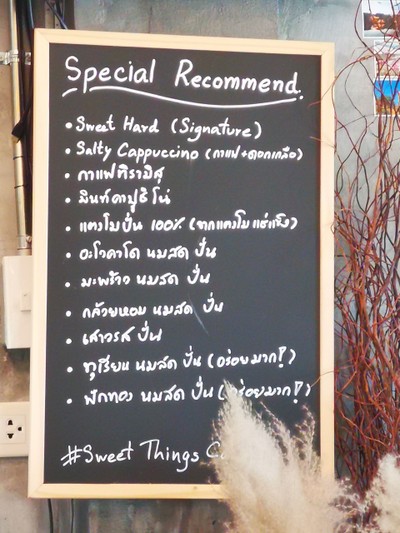 Special Recommend.
• Sweet Hard (Signature)
• Salty Cappuccino (กาแฟ+ดอกเกลือ)
• กาแฟทิรามิสุ
• มินท์คาปูชิโน่
• แตงโมปั่น 100% (จากแตงโมแช่แข็ง)
• อะโวคาโด นมสด ปั่น
• มะพร้าว นมสด ปั่น
• กล้วยหอม นมสด ปั่น
• เสาวรส ปั่น
• ทุเรียน นมสด ปั่น (อร่อยมาก!)
• ฟักทอง นมสด ปั่น (อร่อยมาก!)
#Sweet Things